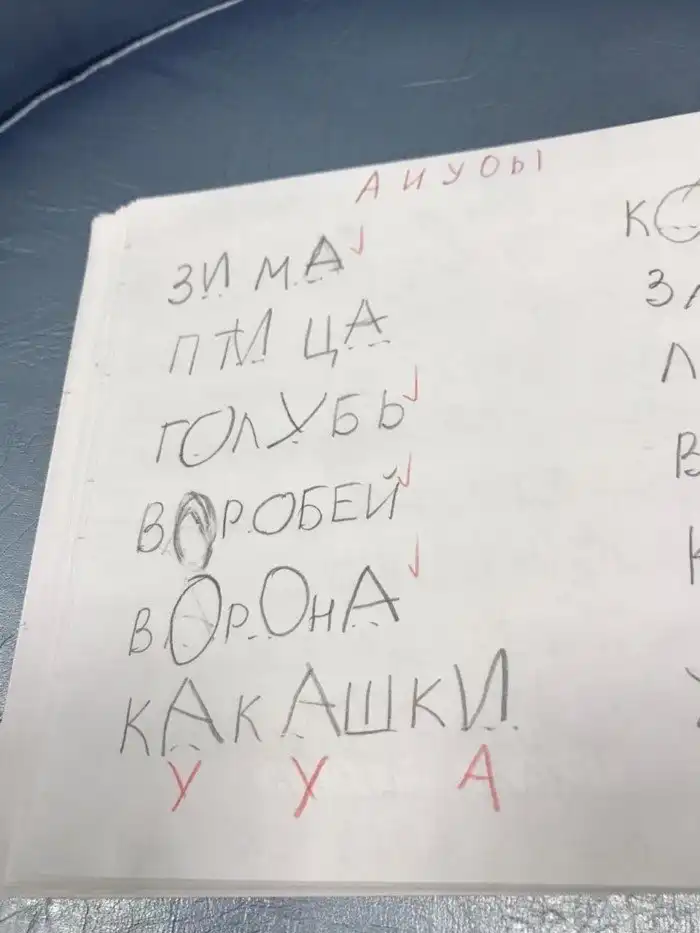 А И У О Ы
ЗИМА
ПТИЦА
ГОЛУБЬ
ВОРОБЕЙ
ВОРОНА
КАКАШКИ
У У А
К
З
Л
В
К